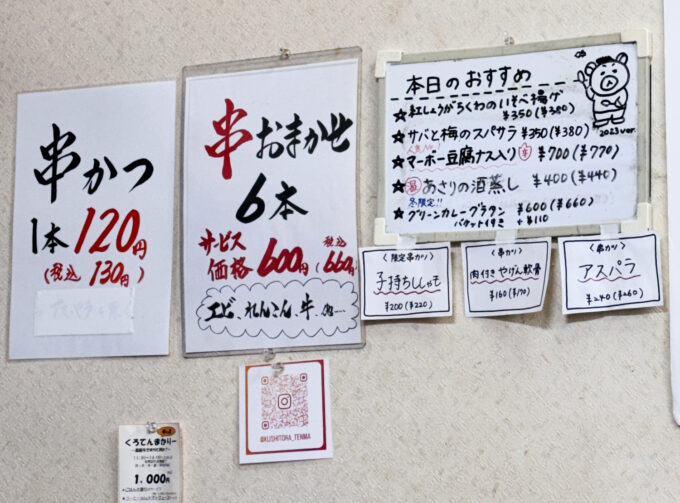 串かつ
1本120円
(税込 130円)
串おまかせ
6本
サービス
価格600円
税込
(660円)
エビ、れんこん、牛、
本日のおすすめ
☆紅しょうがちくわのいそべ揚げ
¥350(¥380)
☆サバと梅のスパサラ ¥350(¥380)
人気No.1
☆マーボー豆腐ナス入り 辛 ¥700(¥770)
☆温 あさりの酒蒸し ¥400(¥440)
冬限定!!
☆グリーンカレーグラタン ¥600(¥660)
バケット付き + ¥110
2023ver.
〈限定串カツ〉
子持ちししゃも
¥200(¥220)
〈串カツ〉
肉付きやげん軟骨
¥160(¥170)
〈串カツ〉
アスパラ
¥240(¥260)
@KUSHITORA_TENMA
くろてんまかりー
1,000円